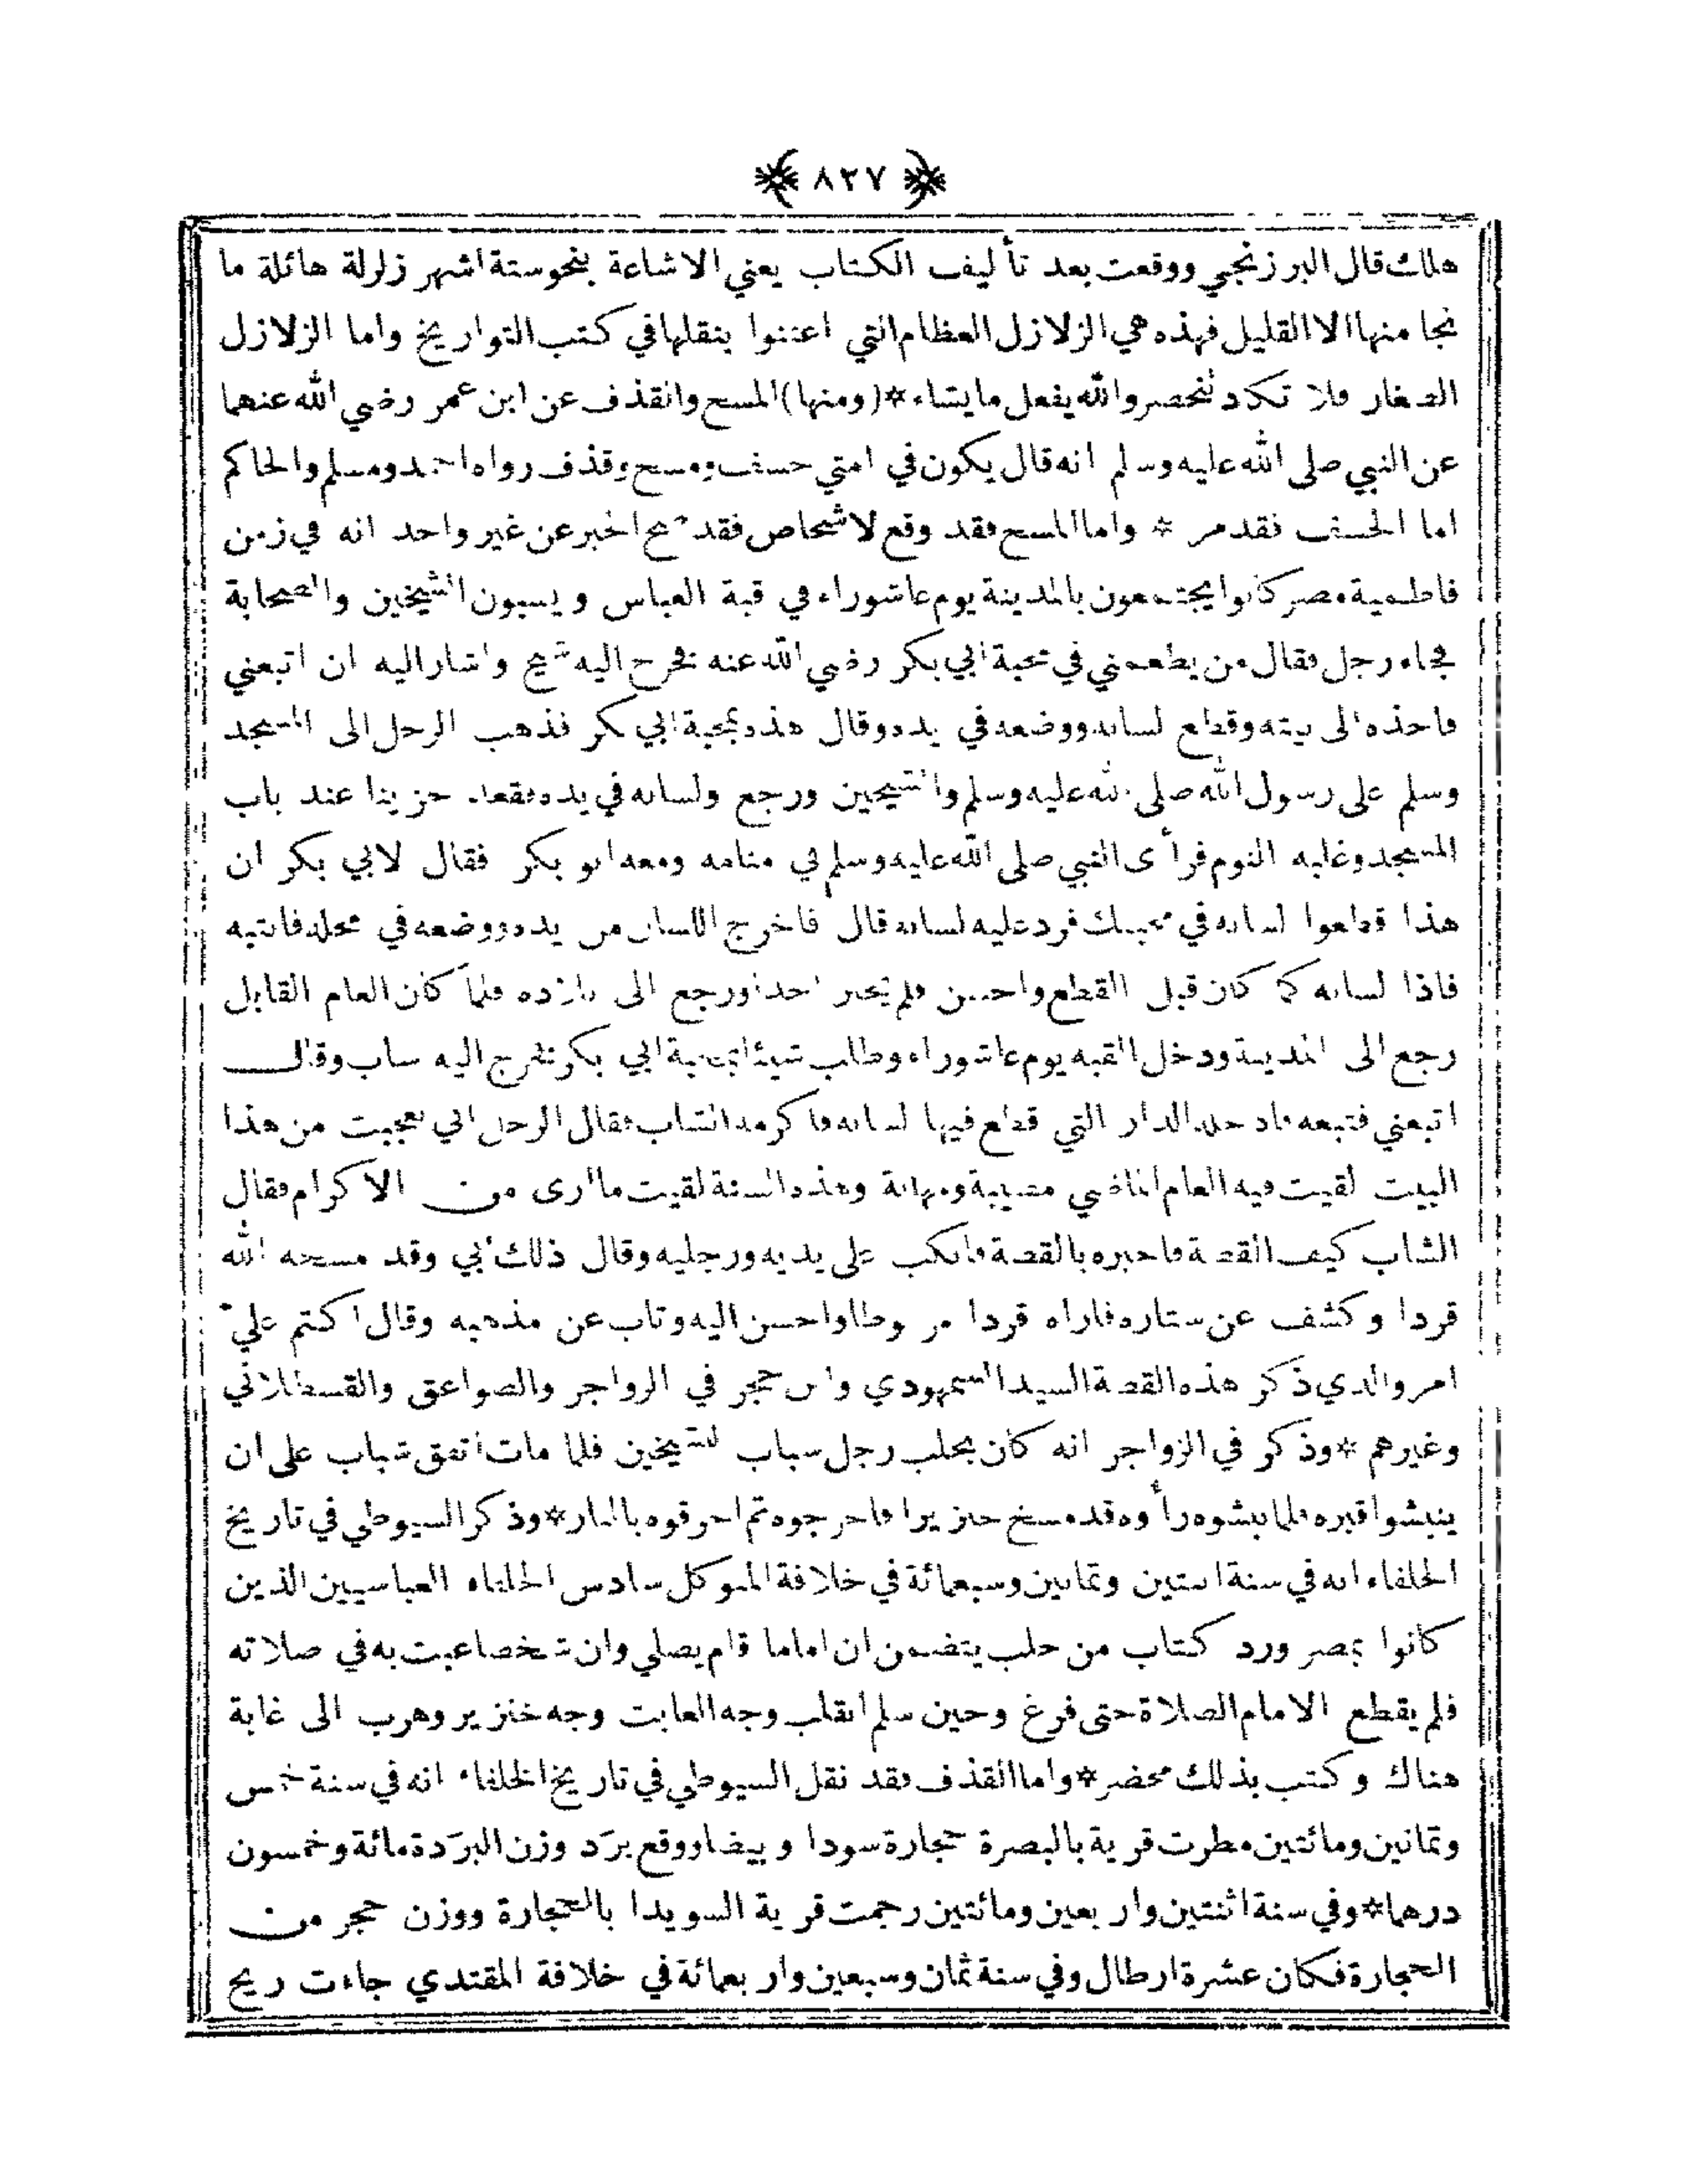 ٨٢٧
هلاك قال البرزنجي ووقعت بعد تأليف الكتاب يعني الاشاعة بنحوستة اشهر زلزلة هائلة ما
نجا منها الا القليل فهذه هي الزلازل العظام التي اعتنوا بنقلها في كتب التواريخ واما الزلازل
الصغار فلا تكاد تنحصر والله يفعل ما يشاء * (ومنها) المسخ والقذف عن ابن عمر رضي الله عنهما
عن النبي صلى الله عليه وسلم انه قال يكون في امتي خسف ومسخ وقذف رواه احمد ومسلم والحاكم
اما الخسف فقد مر * واما المسخ فقد وقع لاشخاص فقد صح الخبر عن غير واحد انه في زمن
فاطمية مصر كانوا يجتمعون بالمدينة يوم عاشوراء في قبة العباس ويسبون الشيخين والصحابة
فجاء رجل فقال من يطعمني في محبة ابي بكر رضي الله عنه فخرج اليه شيخ واشار اليه ان اتبعني
فاخذه الى بيته وقطع لسانه ووضعه في يده وقال هذه بمحبة ابي بكر فذهب الرجل الى المسجد
وسلم على رسول الله صلى الله عليه وسلم والشيخين ورجع ولسانه في يده فقعد حزينا عند باب
المسجد وغلبه النوم فرأى النبي صلى الله عليه وسلم في منامه ومعه ابو بكر فقال لابي بكر ان
هذا قطعوا لسانه في محبتك فرد عليه لسانه قال فاخرج اللسان من يده ووضعه في محله فانتبه
فاذا لسانه كما كان قبل القطع واحسن فلم يخبر احدا ورجع الى بلاده فلما كان العام القابل
رجع الى المدينة ودخل القبه يوم عاشوراء وطلب شيئا بمحبة ابي بكر فخرج اليه شاب وقال
اتبعني فتبعه فادخله الدار التي قطع فيها لسانه فاكرمه الشاب فقال الرجل اني تعجبت من هذا
البيت لقيت فيه العام الماضي مصيبة ومهانة وهذه السنة لقيت ما ارى من الاكرام فقال
الشاب كيف القصة فاخبره بالقصة فانكب على يديه ورجليه وقال ذلك ابي وقد مسخه الله
قردا وكشف عن ستاره فاراه قردا مربوطا واحسن اليه وتاب عن مذهبه وقال اكتم عليّ
امر والدي ذكر هذه القصة السيد السمهودي وابن حجر في الزواجر والصواعق والقسطلاني
وغيرهم * وذكر في الزواجر انه كان بحلب رجل سباب للشيخين فلما مات اتفق شباب على ان
ينبشوا قبره فلما نبشوه رأوه قد مسخ خنزيرا فاخرجوه ثم احرقوه بالنار * وذكر السيوطي في تاريخ
الخلفاء انه في سنة اثنتين وثمانين وسبعمائة في خلافة المتوكل سادس الخلفاء العباسيين الذين
كانوا بمصر ورد كتاب من حلب يتضمن ان اماما قام يصلي وان شخصا عبث به في صلاته
فلم يقطع الامام الصلاة حتى فرغ وحين سلم انقلب وجه العابث وجه خنزير وهرب الى غابة
هناك وكتب بذلك محضر * واما القذف فقد نقل السيوطي في تاريخ الخلفاء انه في سنة خمس
وثمانين ومائتين مطرت قرية بالبصرة حجارة سودا وبيضا ووقع برَد وزن البرَدة مائة وخمسون
درهما * وفي سنة اثنتين واربعين ومائتين رجمت قرية السويدا بالحجارة ووزن حجر من
الحجارة فكان عشرة ارطال وفي سنة ثمان وسبعين واربعمائة في خلافة المقتدي جاءت ريح